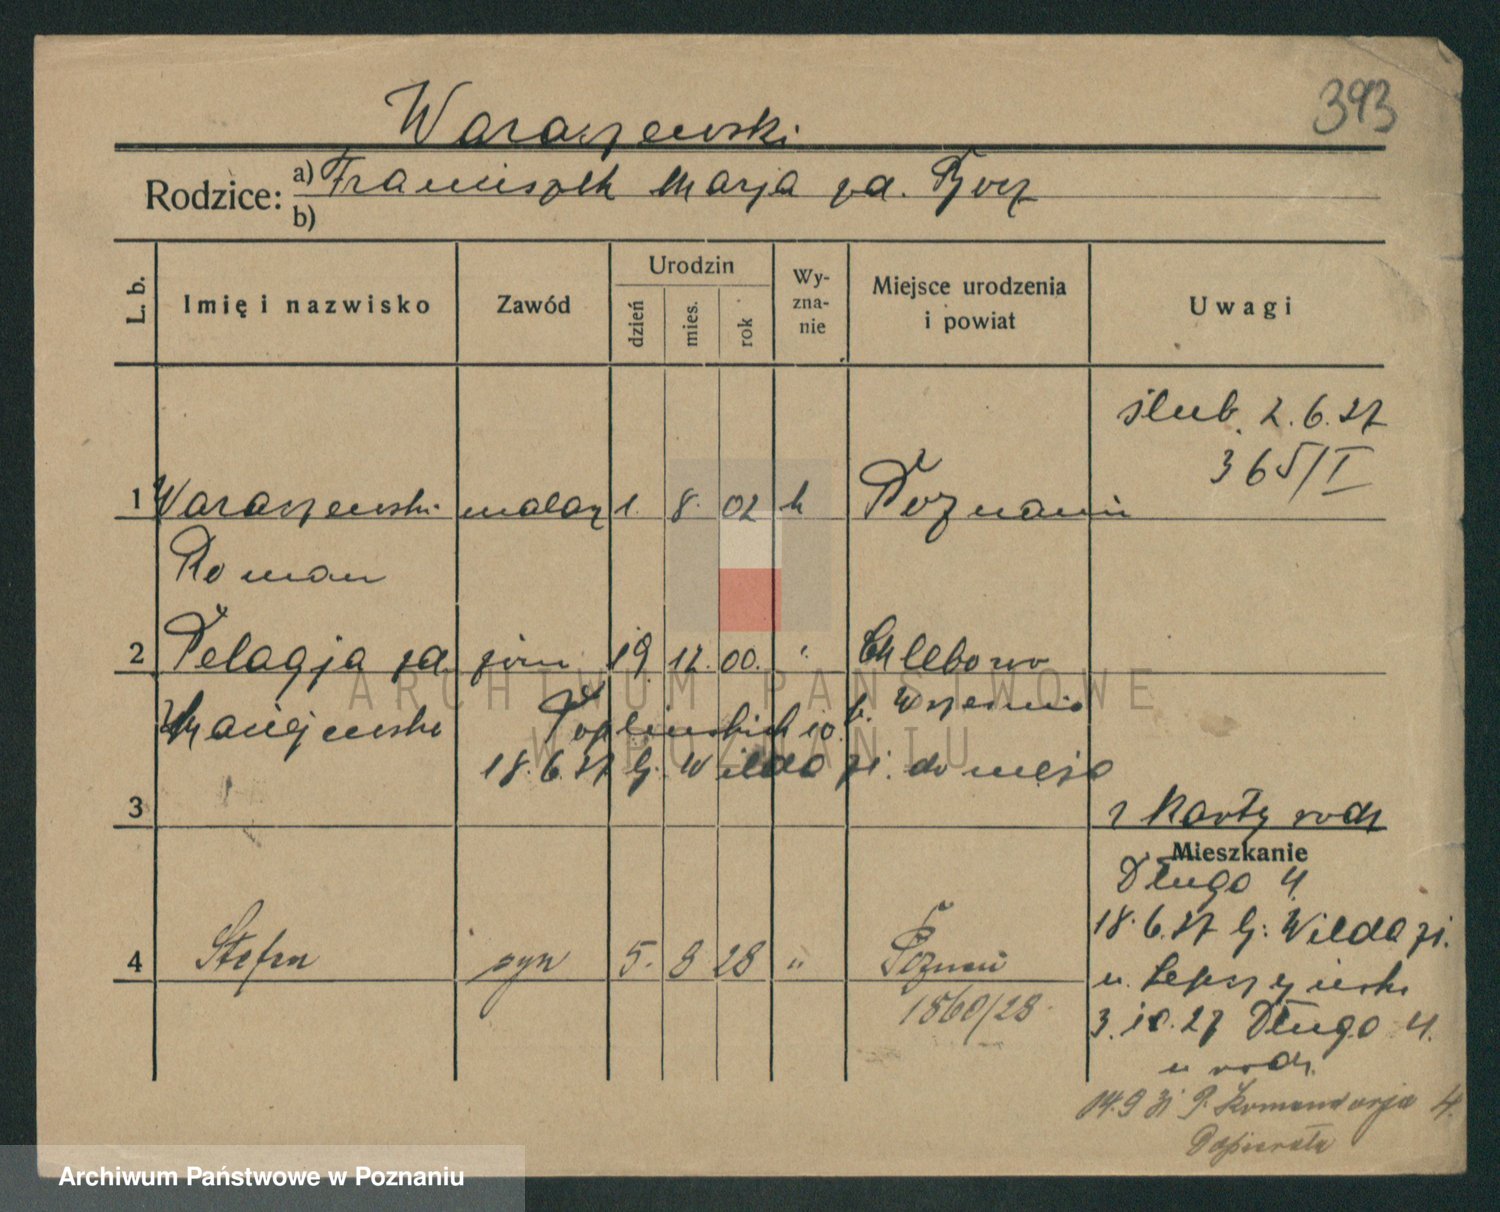 393
Waraszewski
Rodzice: a) Franciszek Marja za.
b)
L. b.
Imię i nazwisko
Zawód
Urodzin
dzień
mies.
rok
Wy-
zna-
nie
Miejsce urodzenia
i powiat
Uwagi
ślub. 2.6.27
365/I
1 Waraszewski malarz 1. 8. 02 k Poznaniu
Roman
2 Pelagja za żona 19. 12. 00. " Chlebowo
Maciejewska b. Września
18.6.27 Lj. Wilda do męża
3
z karty rodz
Mieszkanie
Długa 4
18.6.27 Lj. Wilda
4 Stefan syn 5. 8 28 " Poznań
u.
1860/28
3.10.27 Długa 4.
u rodz.
14.9 31 P. Komandorja 4
ARCHIWUM PAŃSTWOWE
W POZNANIU
Archiwum Państwowe w Poznaniu